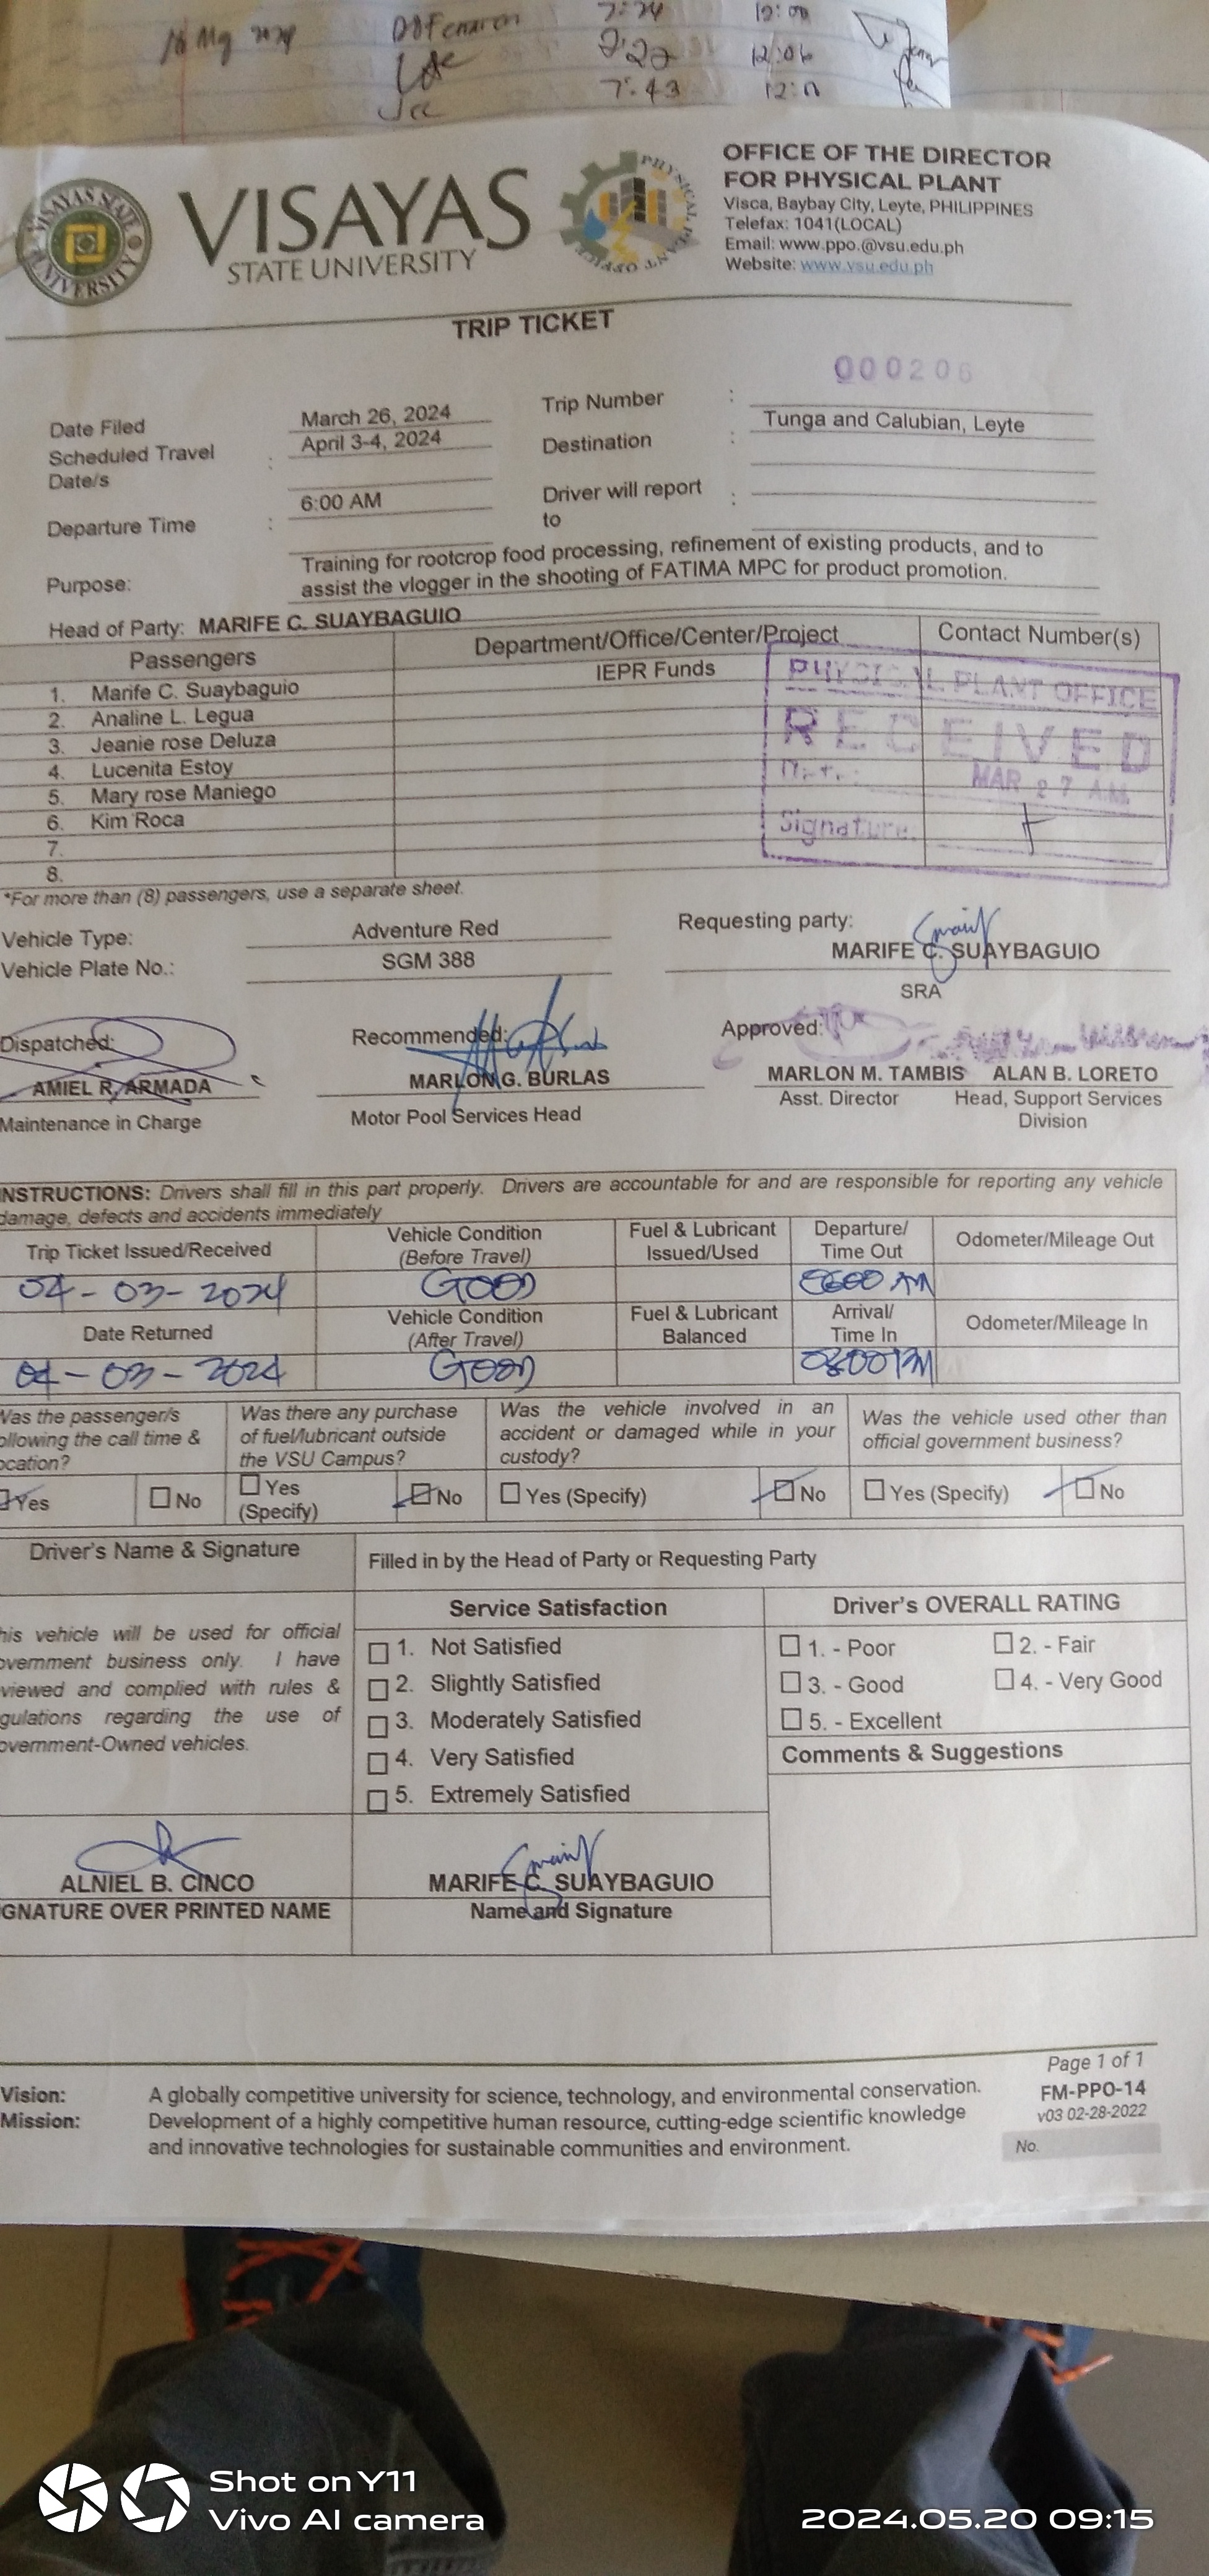 7:24 12:00
2:22 12:06
7:43
VISAYAS STATE UNIVERSITY
VISAYAS
STATE UNIVERSITY
PHYSICAL PLANT OFFICE
OFFICE OF THE DIRECTOR
FOR PHYSICAL PLANT
Visca, Baybay City, Leyte, PHILIPPINES
Telefax: 1041(LOCAL)
Email: www.ppo.@vsu.edu.ph
Website: www.vsu.edu.ph
TRIP TICKET
000206
Date Filed March 26, 2024 Trip Number :
Scheduled Travel Date/s : April 3-4, 2024 Destination : Tunga and Calubian, Leyte
Departure Time : 6:00 AM Driver will report to :
Purpose: Training for rootcrop food processing, refinement of existing products, and to
assist the vlogger in the shooting of FATIMA MPC for product promotion.
Head of Party: MARIFE C. SUAYBAGUIO
Passengers Department/Office/Center/Project Contact Number(s)
1. Marife C. Suaybaguio IEPR Funds
2. Analine L. Legua
3. Jeanie rose Deluza
4. Lucenita Estoy
5. Mary rose Maniego
6. Kim Roca
7.
8.
PHYSICAL PLANT OFFICE
RECEIVED
Date: MAR 27 A.M.
Signature:
*For more than (8) passengers, use a separate sheet.
Vehicle Type: Adventure Red Requesting party:
Vehicle Plate No.: SGM 388 MARIFE C. SUAYBAGUIO
SRA
Dispatched: Recommended: Approved:
AMIEL R. ARMADA MARLON G. BURLAS MARLON M. TAMBIS ALAN B. LORETO
Maintenance in Charge Motor Pool Services Head Asst. Director Head, Support Services
Division
INSTRUCTIONS: Drivers shall fill in this part properly. Drivers are accountable for and are responsible for reporting any vehicle
damage, defects and accidents immediately
Trip Ticket Issued/Received Vehicle Condition (Before Travel) Fuel & Lubricant Issued/Used Departure/ Time Out Odometer/Mileage Out
04-03-2024 GOOD 0600 AM
Date Returned Vehicle Condition (After Travel) Fuel & Lubricant Balanced Arrival/ Time In Odometer/Mileage In
04-03-2024 GOOD
Was the passenger/s Was there any purchase Was the vehicle involved in an Was the vehicle used other than
ollowing the call time & of fuel/lubricant outside accident or damaged while in your official government business?
ocation? the VSU Campus? custody?
Yes No Yes (Specify) No Yes (Specify) No Yes (Specify) No
Driver's Name & Signature Filled in by the Head of Party or Requesting Party
Service Satisfaction Driver's OVERALL RATING
his vehicle will be used for official
overnment business only. I have
viewed and complied with rules &
gulations regarding the use of
overnment-Owned vehicles.
1. Not Satisfied 1. - Poor 2. - Fair
2. Slightly Satisfied 3. - Good 4. - Very Good
3. Moderately Satisfied 5. - Excellent
4. Very Satisfied Comments & Suggestions
5. Extremely Satisfied
ALNIEL B. CINCO MARIFE C. SUAYBAGUIO
GNATURE OVER PRINTED NAME Name and Signature
Page 1 of 1
Vision: A globally competitive university for science, technology, and environmental conservation. FM-PPO-14
Mission: Development of a highly competitive human resource, cutting-edge scientific knowledge v03 02-28-2022
and innovative technologies for sustainable communities and environment. No.
Shot on Y11
Vivo AI camera
2024.05.20 09:15